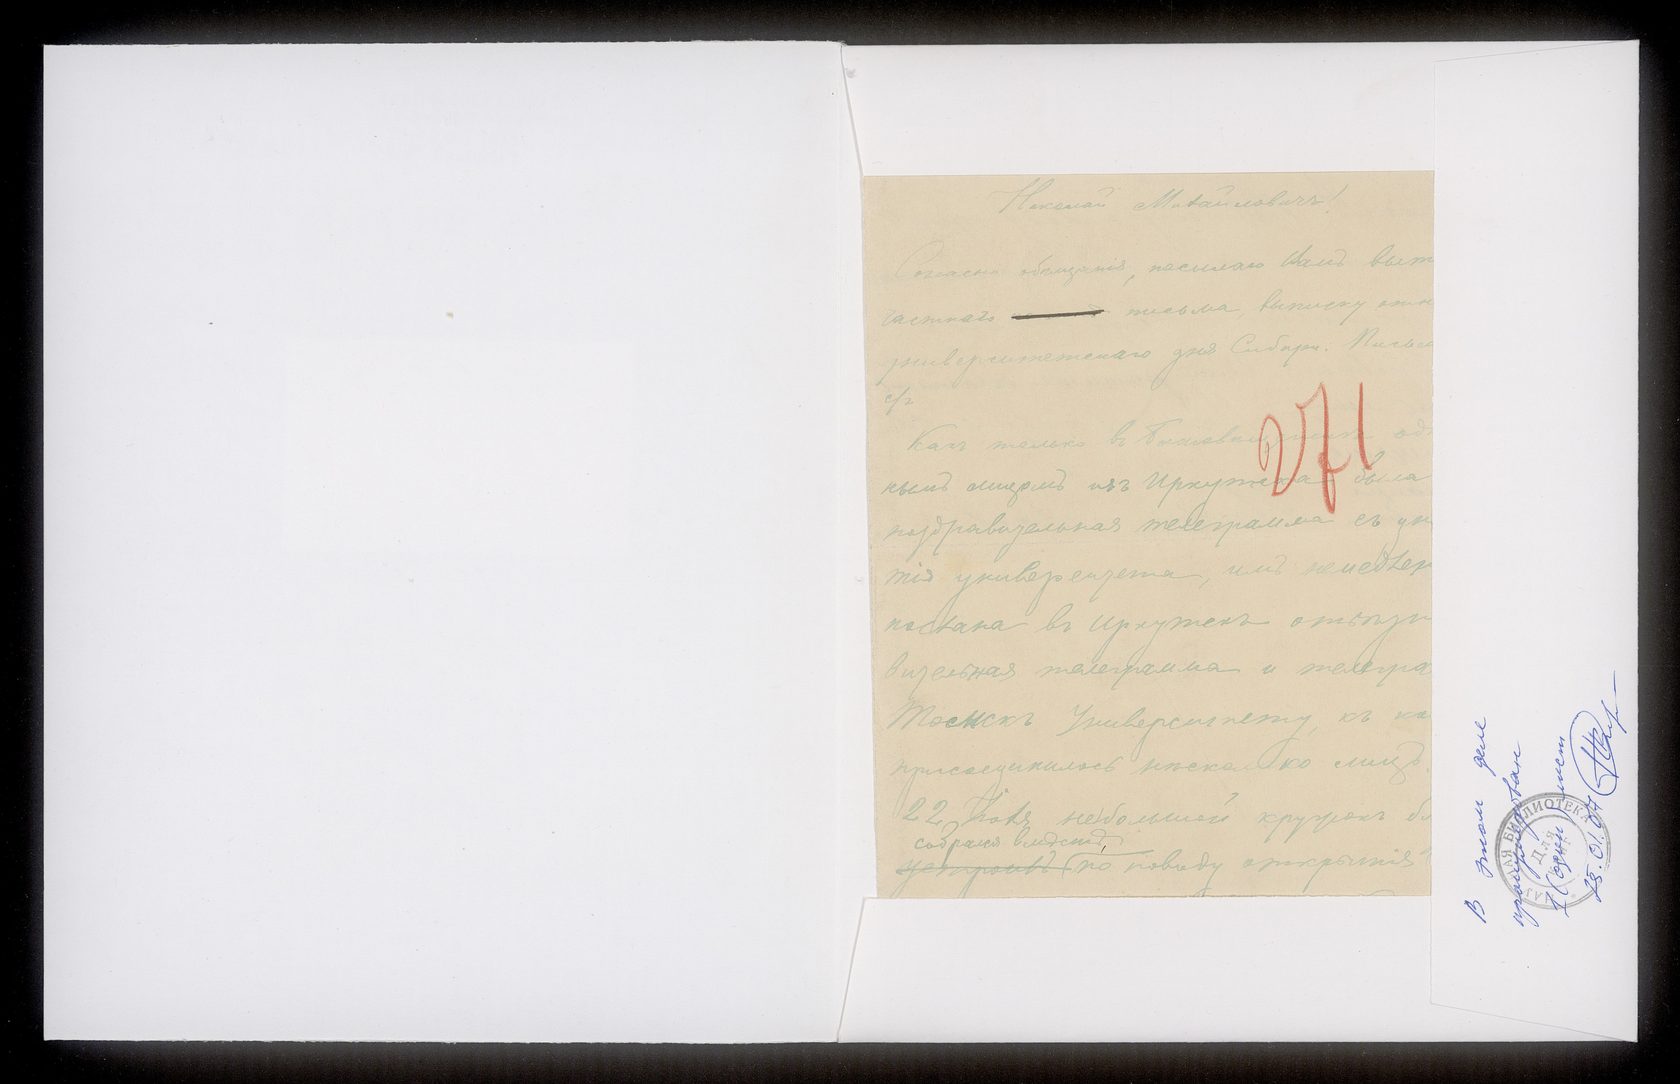 Николай Михайловичъ!
Согласно обѣщанія, посылаю Вамъ вып
частнаго письма, выписку отн
университетскаго дня Сибири. Письмо
Какъ только въ
нымъ лицомъ изъ Иркутска была
поздравительная телеграмма съ дн
тія университета, имъ немедлен
послана въ Иркутскъ отвѣтн
вительная телеграмма и телегра
Томскъ Университету, къ ко
присоединилось нѣсколько лицъ.
22 Іюля небольшой кружокъ
собрался вмѣстѣ,
устроивъ по поводу открытія
VI
В этом деле
пронумерован
1 (один) лист
25.01.07
БИБЛИОТЕКА
Для